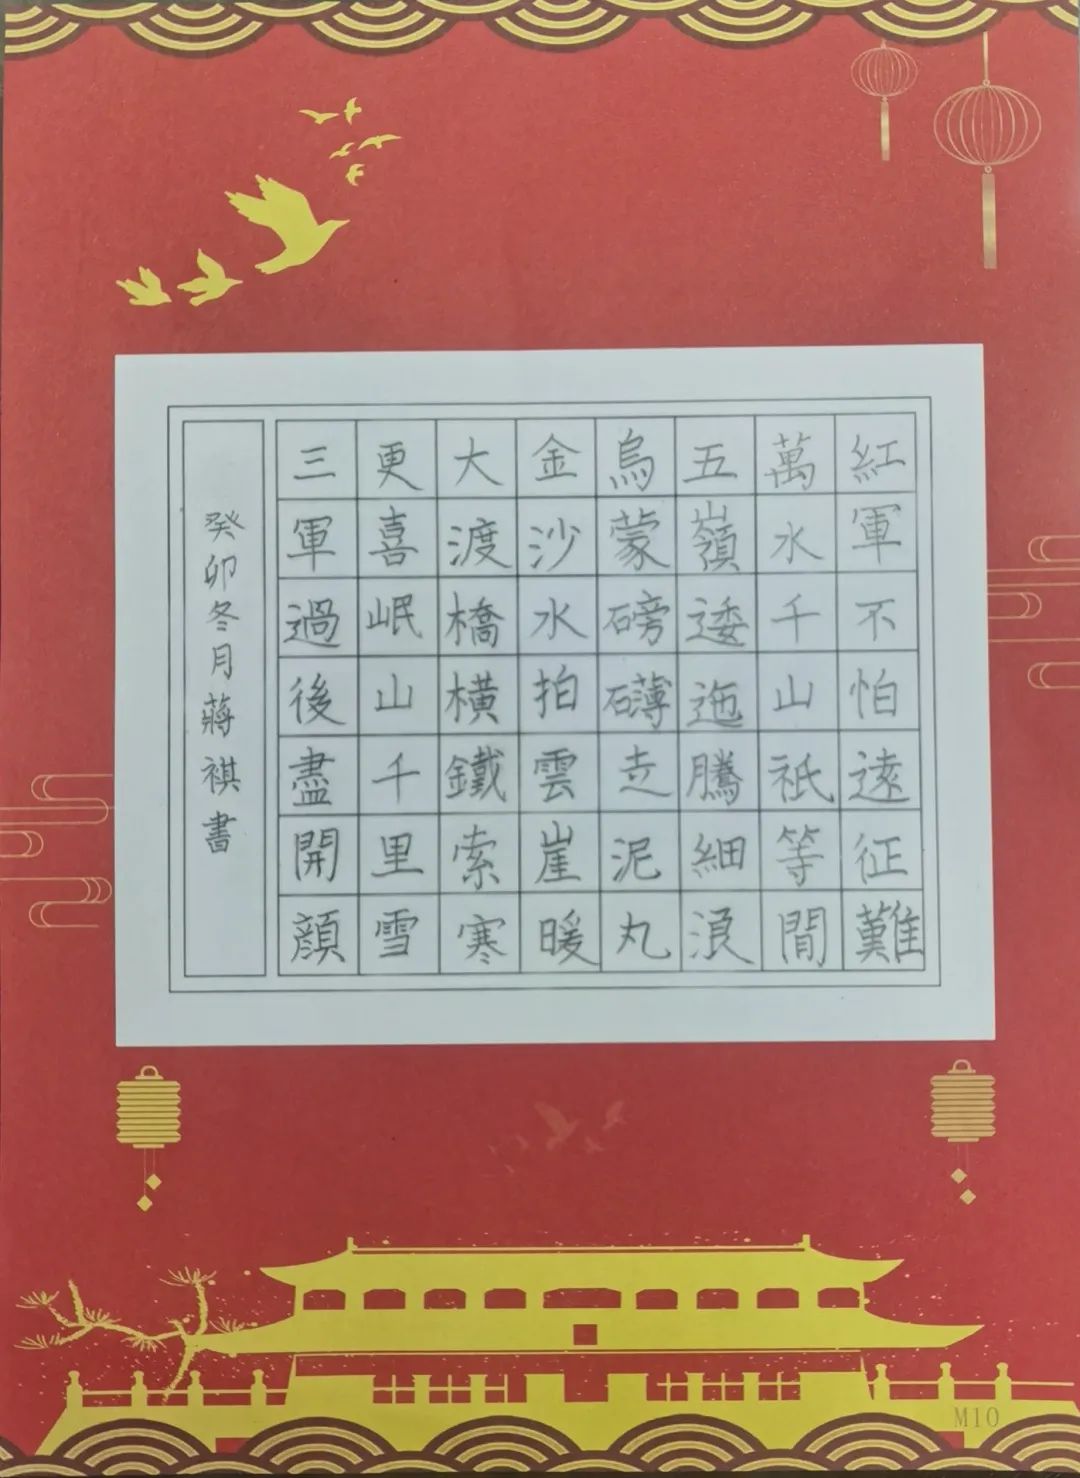 紅軍不怕遠征難
萬水千山祇等閒
五嶺逶迤騰細浪
烏蒙磅礴走泥丸
金沙水拍雲崖暖
大渡橋橫鐵索寒
更喜岷山千里雪
三軍過後盡開顔
癸卯冬月蔣祺書
M10